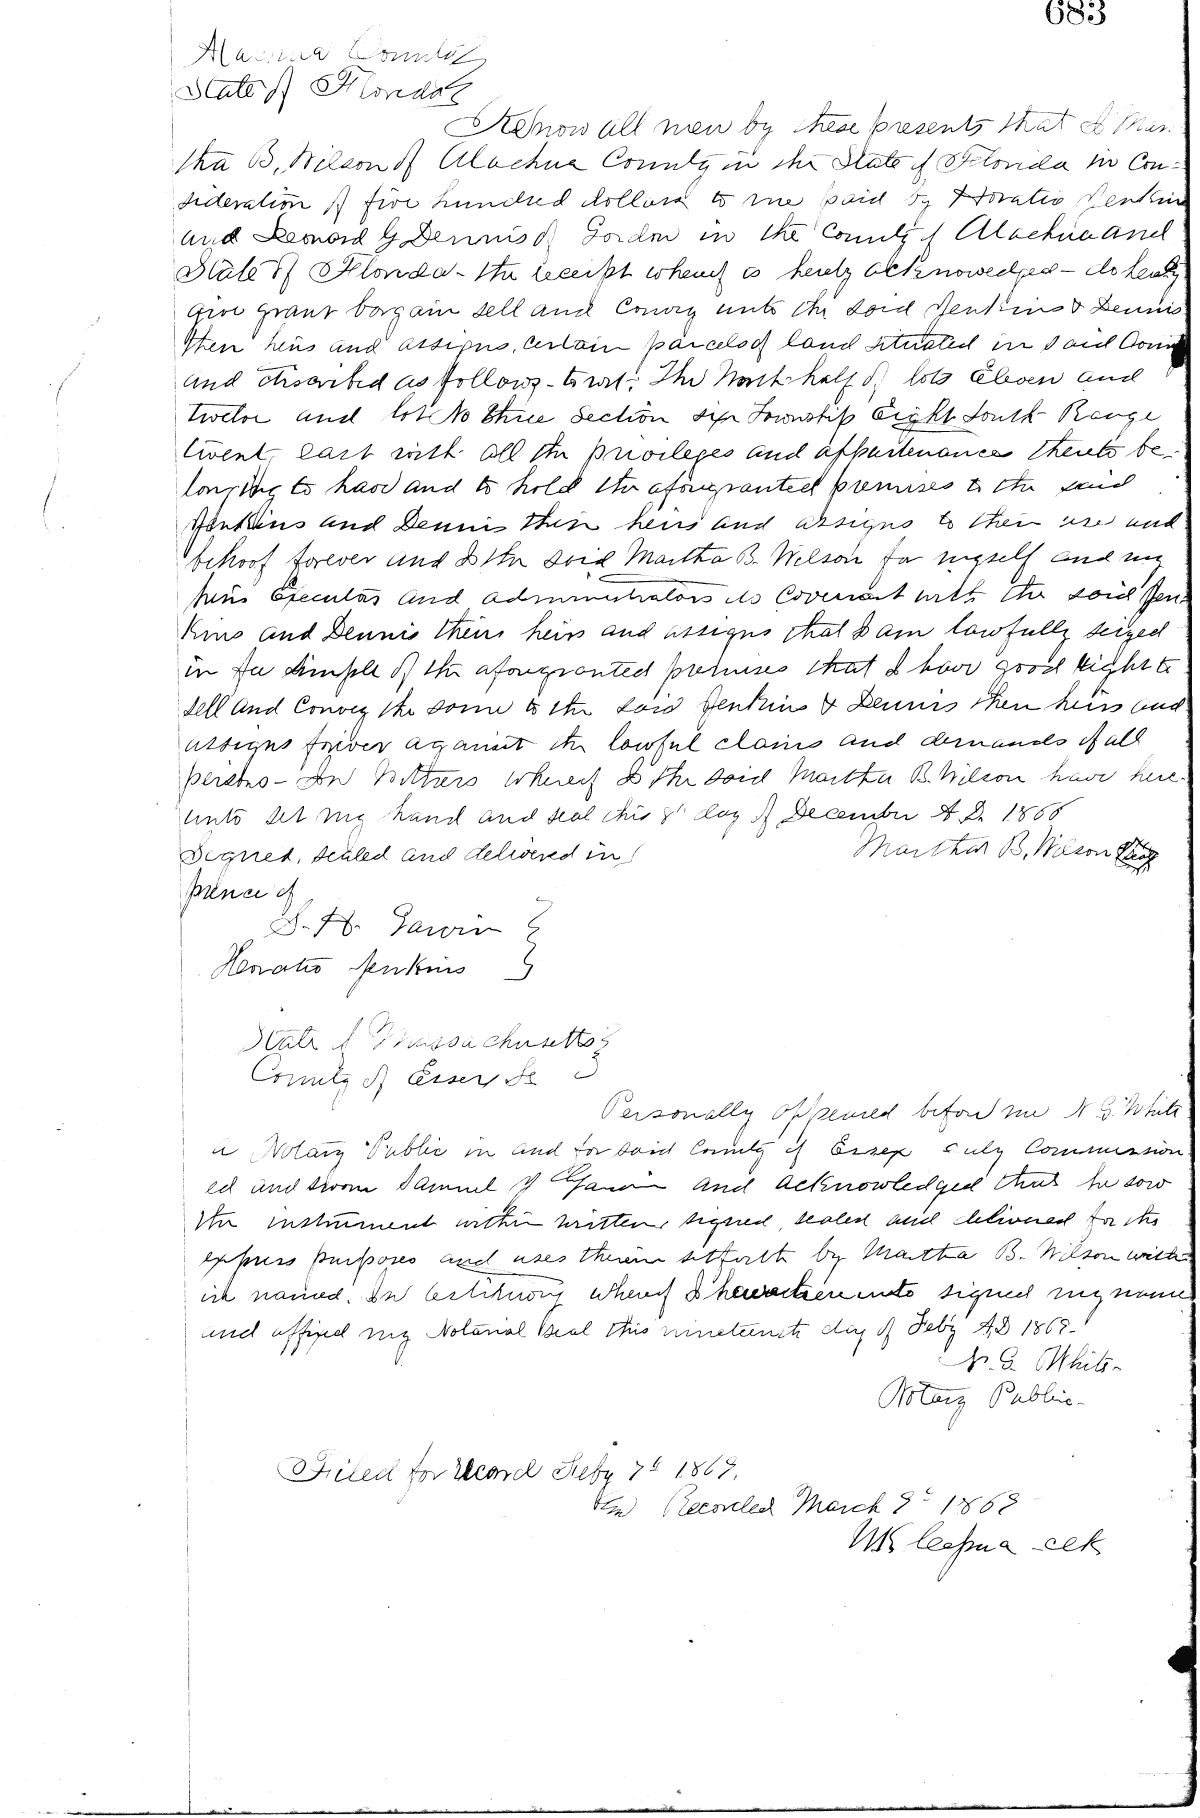 683
Alachua County
State of Florida
Know all men by these presents that I Mar-
tha B. Wilson of Alachua County in the State of Florida in Con-
sideration of five hundred dollars to me paid by Horatio Jenkins
and Leonard G Dennis of Gordon in the County of Alachua and
State of Florida - the receipt whereof is hereby acknowedged - do hereby
give grant bargain sell and Convey unto the said Jenkins & Dennis
their heirs and assigns, certain parcels of land situated in said County
and discribed as follows - to wit: The North half of lots Eleven and
twelve and lot No three Section six Township Eight South Range
twenty east with all the privileges and appurtenances thereto be-
longing to have and to hold the aforegranted premises to the said
Jenkins and Dennis their heirs and assigns to their use and
behoof forever and I the said Martha B. Wilson for myself and my
heirs Executors and administrators do Covenant with the said Jen-
kins and Dennis theirs heirs and assigns that I am lawfully seized
in fee simple of the aforegranted premises that I have good right to
sell and Convey the same to the said Jenkins & Dennis their heirs and
assigns forever against the lawful claims and demands of all
persons - In Witness whereof I the said Martha B. Wilson have here-
unto set my hand and seal this 8th day of December A.D. 1866
Signed, sealed and delivered in Martha B. Wilson Seal
presence of
S. H. Garvin
Horatio Jenkins
State of Massachusetts
County of Essex Ss
Personally appeared before me N G. White
a Notary Public in and for said County of Essex duly Commission
ed and sworn Samuel Garvin and acknowledged that he saw
the instrument within written, signed, sealed and delivered for the
express purposes and uses therein setforth by Martha B. Wilson with-
in named. In testimony whereof I have hereunto signed my name
and affixed my Notarial seal this nineteenth day of Feby A,D 1869-
N. G. White-
Notary Public-
Filed for Record Feby 7th 1869.
Recorded March 9th 1869
clk